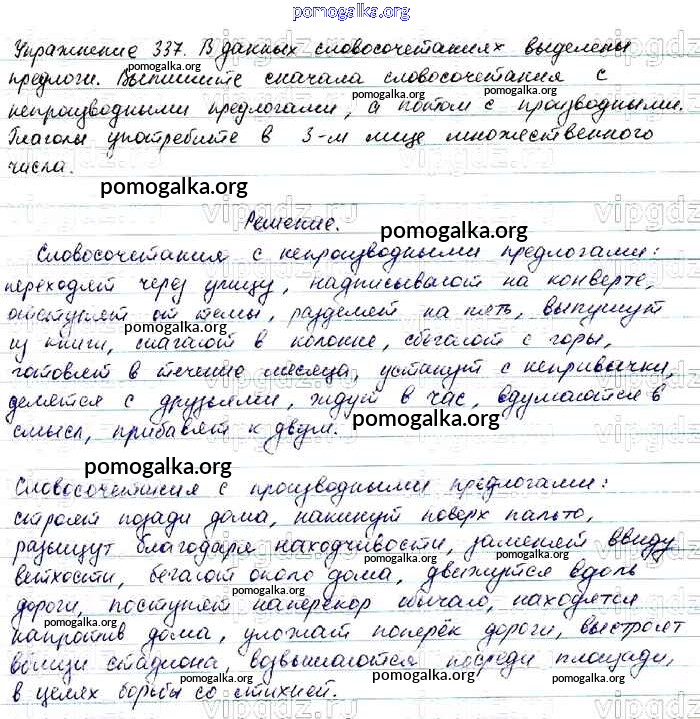 pomogalka.org
Упражнение 337. В данных словосочетаниях выделены
предлоги. Выпишите сначала словосочетания с
непроизводными предлогами, а потом с производными.
Глаголы употребите в 3-м лице множественного
числа.
pomogalka.org
Решение.
pomogalka.org
Словосочетания с непроизводными предлогами:
переходят через улицу, надписывают на конверте,
отступят от темы, разделят на пять, выпустят
pomogalka.org
из книги, шагают в колонне, сбегают с горы,
готовят в течение месяца, устанут с непривычки,
делятся с друзьями, ждут в час, вдумаются в
pomogalka.org
смысл, прибавят к двум.
pomogalka.org
Словосочетания с производными предлогами:
строят позади дома, накинут поверх пальто,
pomogalka.org
разыщут благодаря находчивости, заменят ввиду
ветхости, бегают около дома, движутся вдоль
pomogalka.org
дороги, поступят наперекор обычаю, находятся
pomogalka.org
напротив дома, уложат поперёк дороги, выстроят
вблизи стадиона, возвышаются посреди площади,
pomogalka.org
в целях борьбы со стихией.
pomogalka.org